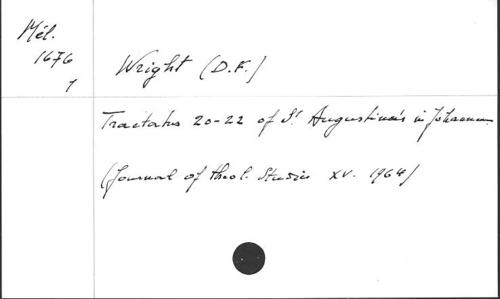 Mél.
1676
1
Wright (D.F.)
Tractatus 20-22 of St Augustine's in Johannem
(Journal of theol. Studies XV. 1964)